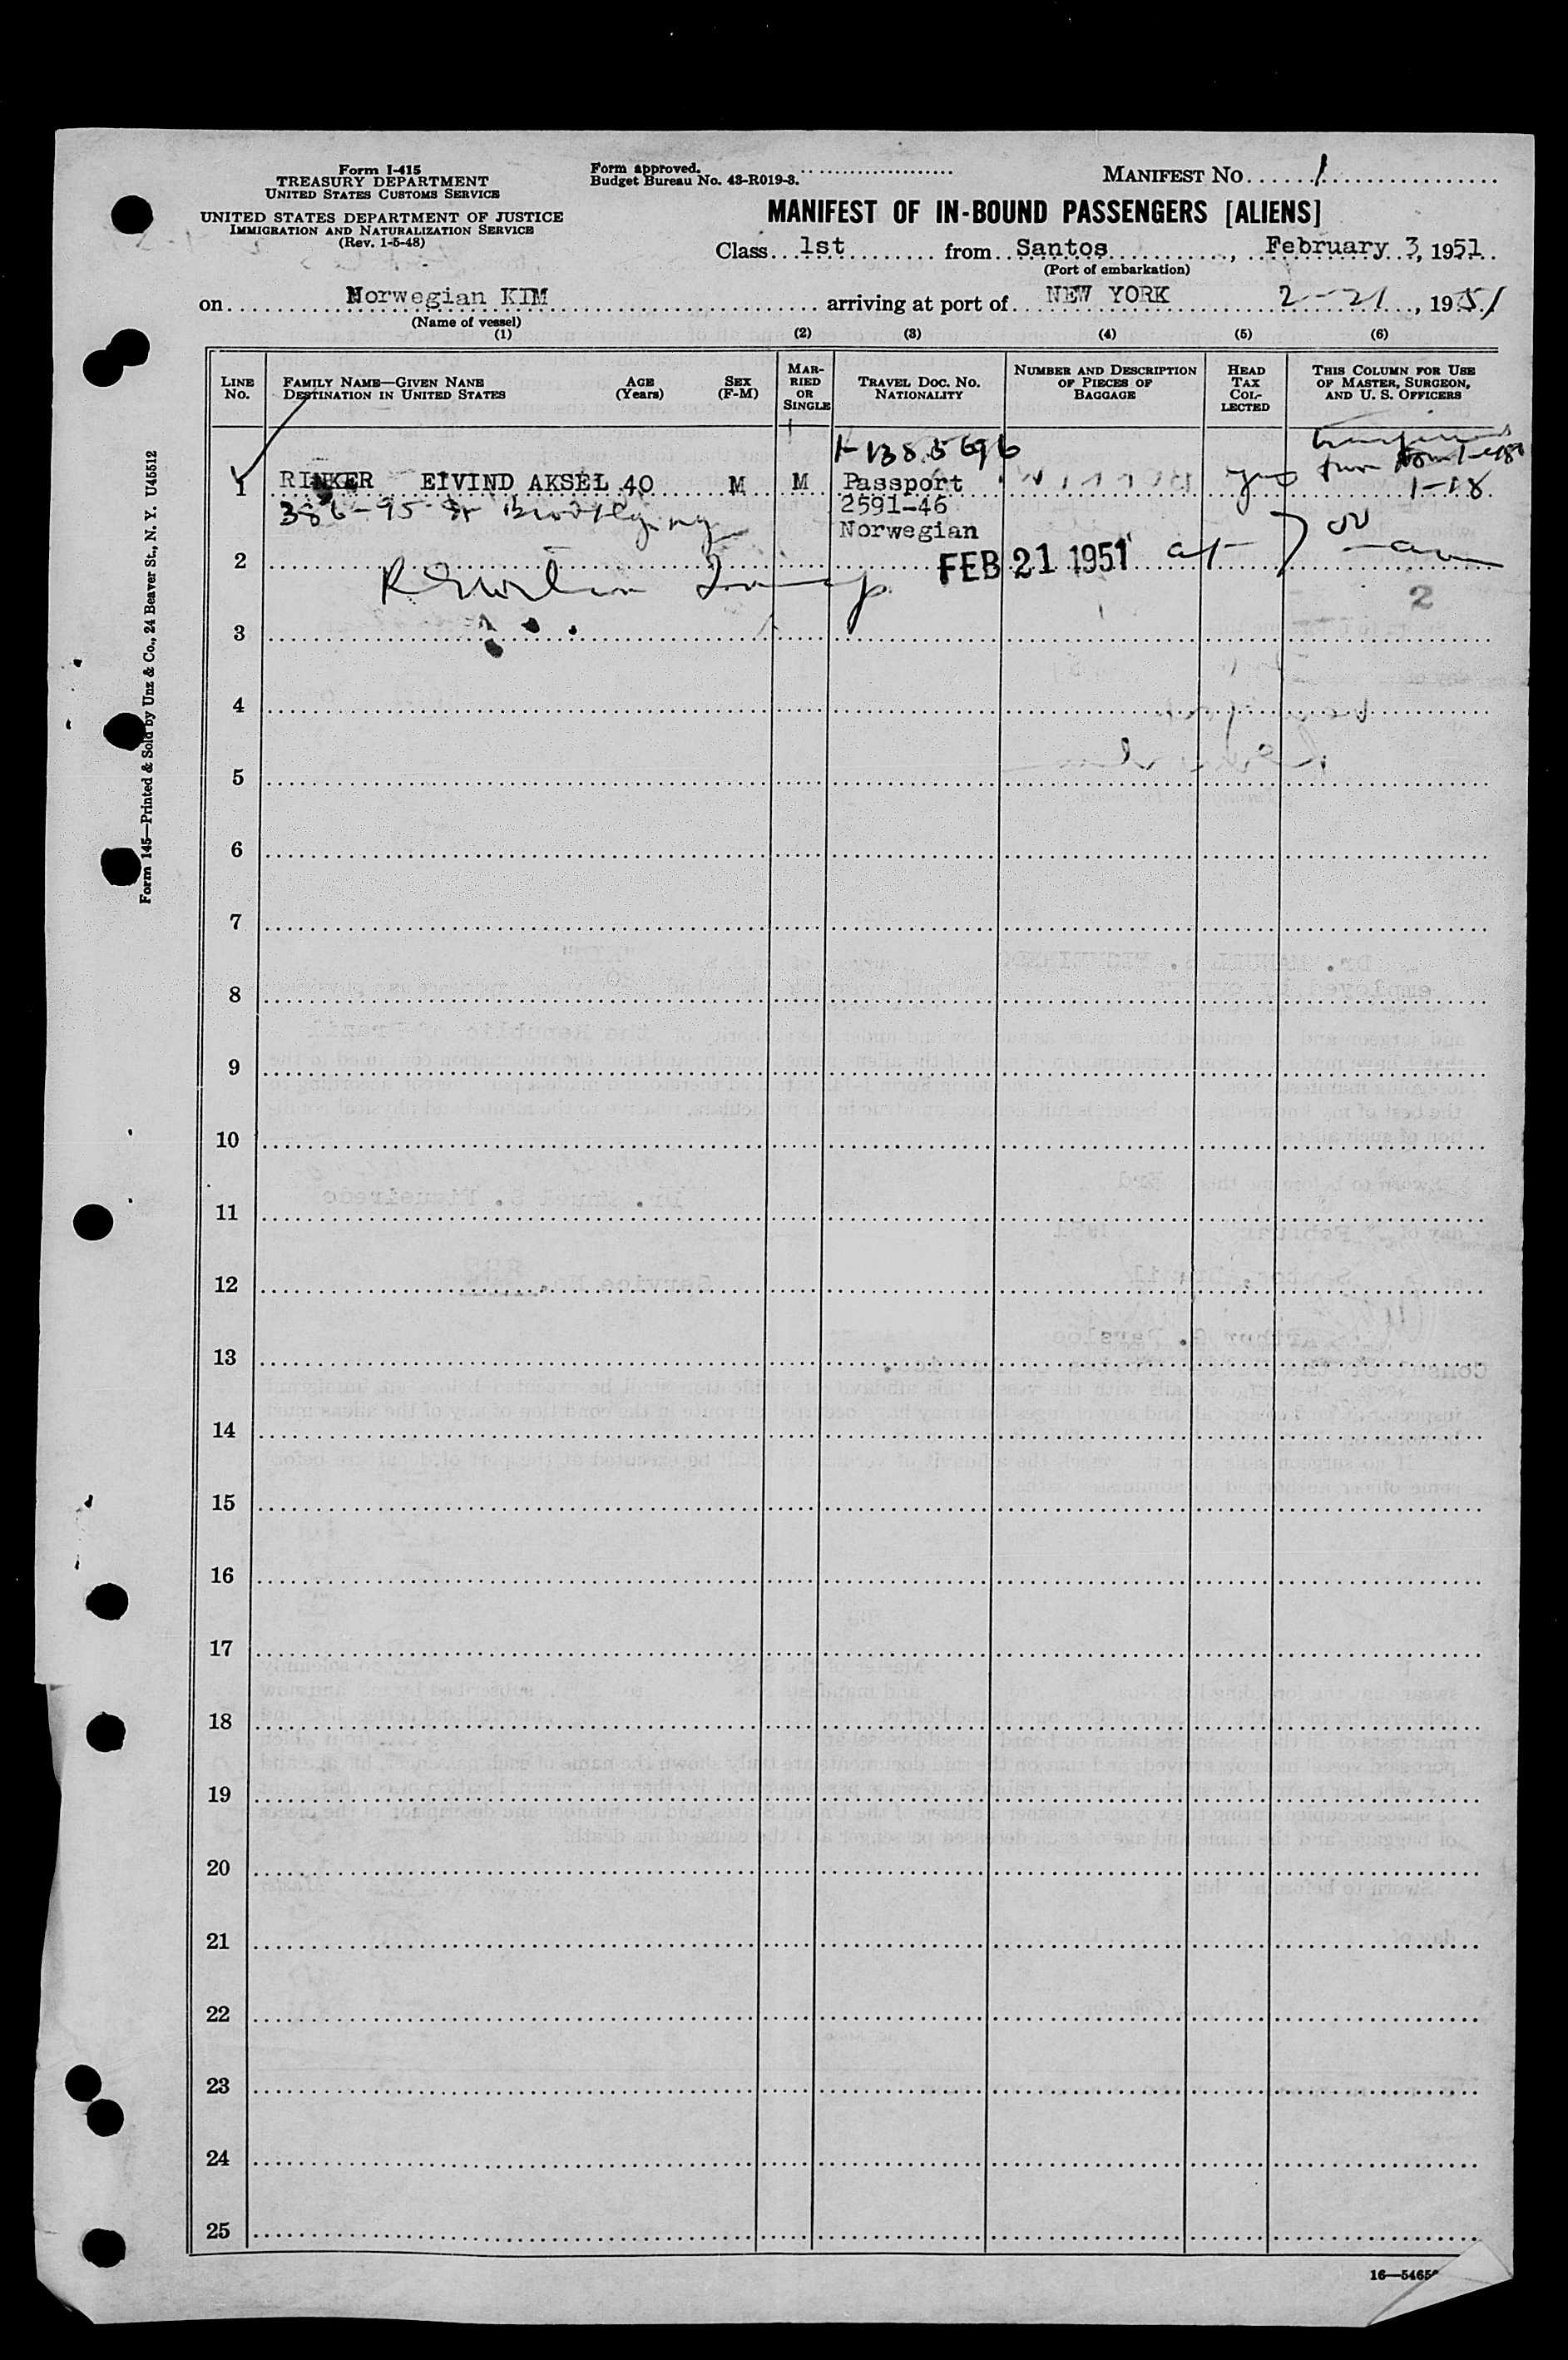 Form I-415
TREASURY DEPARTMENT
UNITED STATES CUSTOMS SERVICE
UNITED STATES DEPARTMENT OF JUSTICE
IMMIGRATION AND NATURALIZATION SERVICE
(Rev. 1-5-48)
Form approved.
Budget Bureau No. 43-R019-3.
MANIFEST No. 1
MANIFEST OF IN-BOUND PASSENGERS [ALIENS]
Class 1st from Santos, February 3, 1951
(Port of embarkation)
on Norwegian KIM arriving at port of NEW YORK 2-21, 1951
(Name of vessel)
(1) (2) (3) (4) (5) (6)
LINE No.
FAMILY NAME—GIVEN NANE
DESTINATION IN UNITED STATES
AGE (Years)
SEX (F-M)
MARRIED OR SINGLE
TRAVEL DOC. NO. NATIONALITY
NUMBER AND DESCRIPTION OF PIECES OF BAGGAGE
HEAD TAX COLLECTED
THIS COLUMN FOR USE OF MASTER, SURGEON, AND U. S. OFFICERS
1-1385696
1 RINKER EIVIND AKSEL 40 M M Passport yes
1-18
386-95 St Brooklyn ny 2591-46
Norwegian
2 FEB 21 1951 at 7 00 am
2
3
4
5
6
7
8
9
10
11
12
13
14
15
16
17
18
19
20
21
22
23
24
25
Form 145—Printed & Sold by Unz & Co., 24 Beaver St., N. Y. U45512